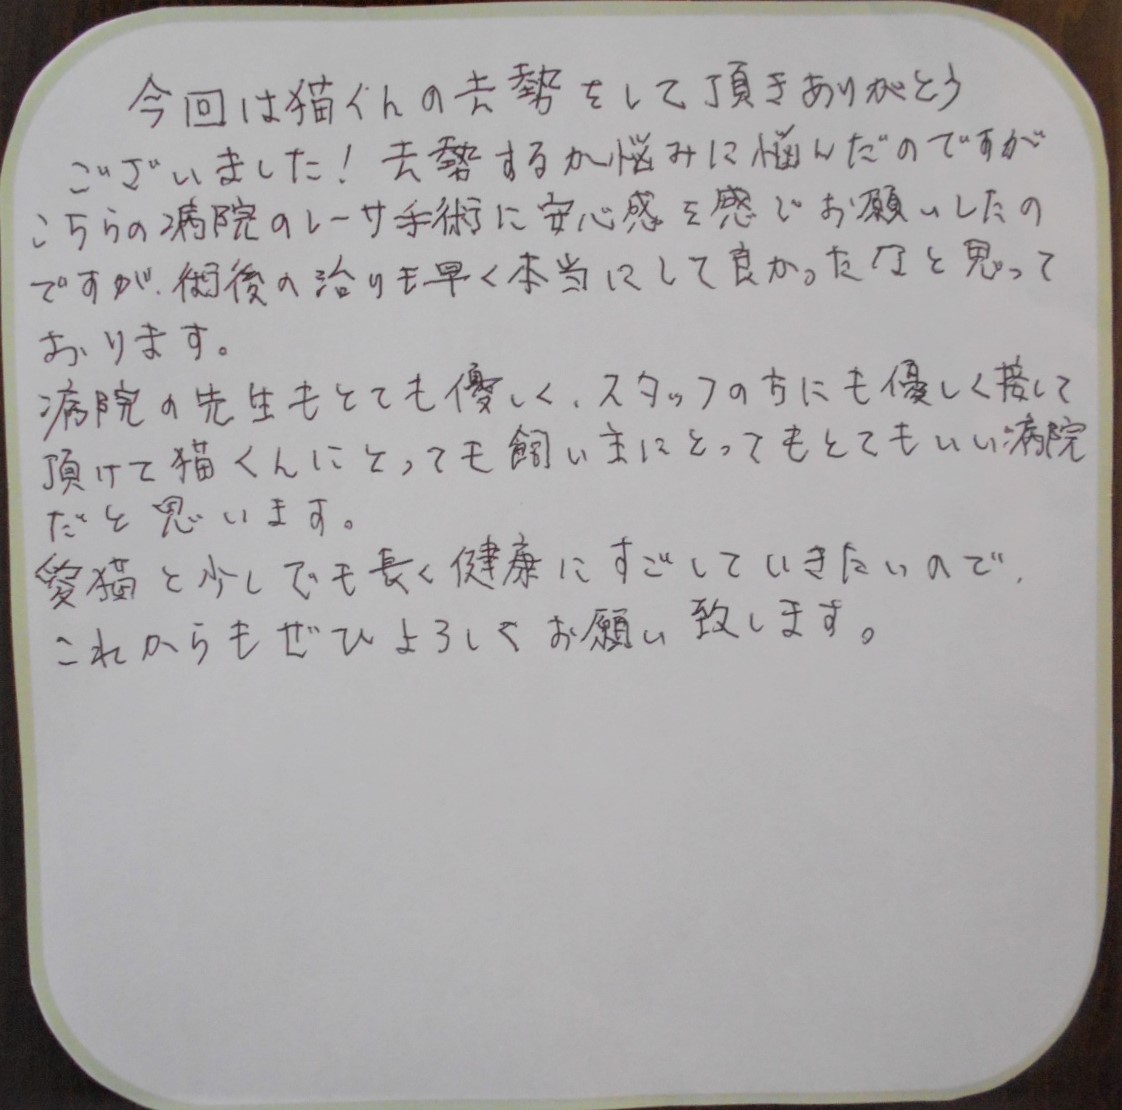 今回は猫くんの去勢をして頂きありがとう
ございました！去勢するか悩みに悩んだのですが
こちらの病院のレーサ手術に安心感を感じお願いしたの
ですが、術後の治りも早く本当にして良かったなと思って
おります。
病院の先生もとても優しく、スタッフの方にも優しく接して
頂けて猫くんにとっても飼い主にとってもとてもいい病院
だと思います。
愛猫と少しでも長く健康にすごしていきたいので、
これからもぜひよろしくお願い致します。